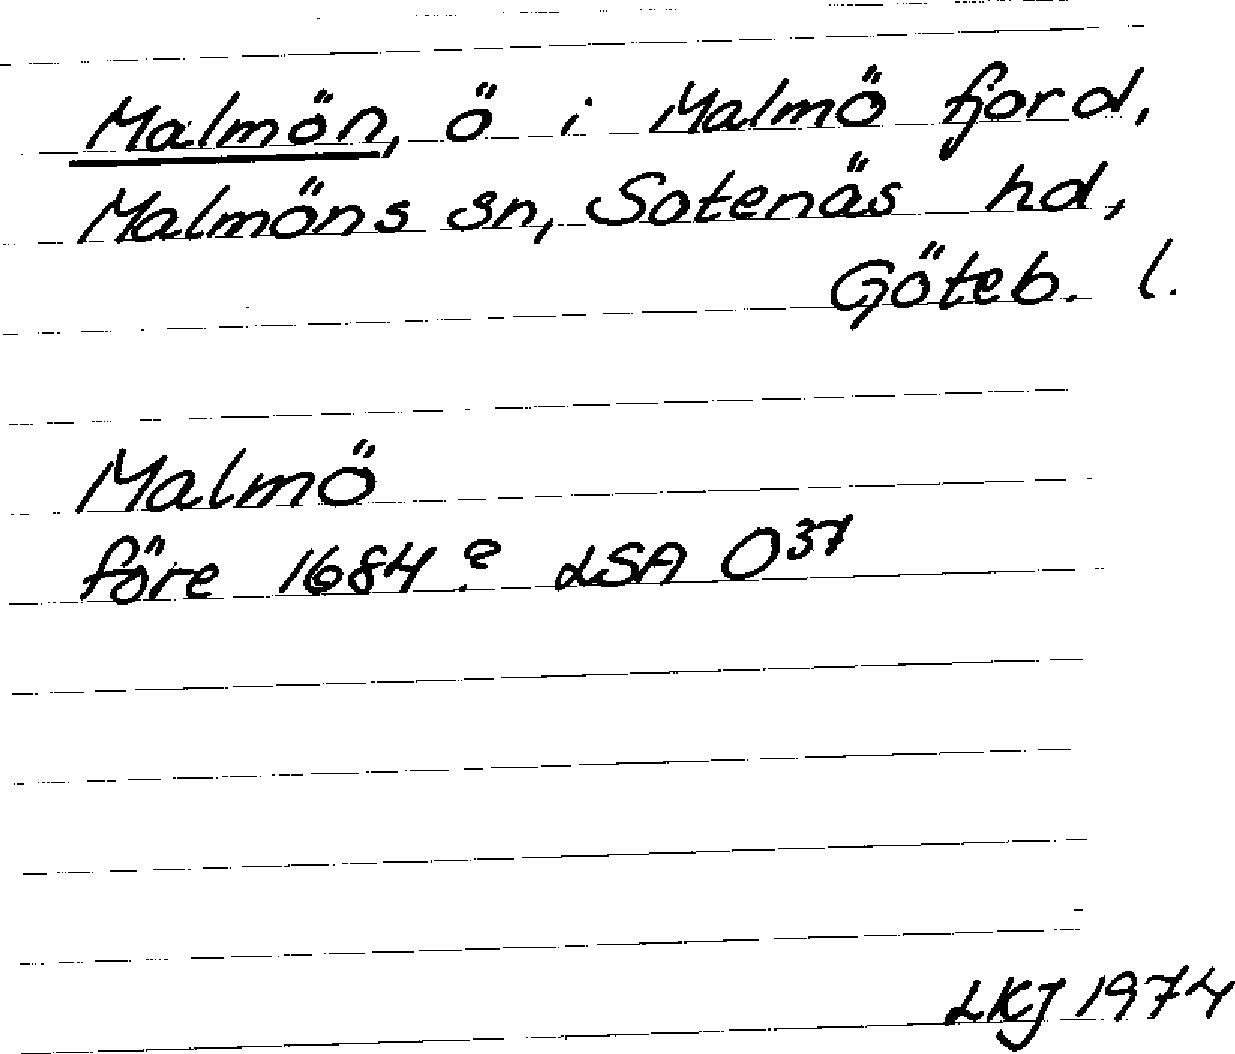 Malmön, ö i Malmö fjord,
Malmöns sn, Sotenäs hd,
Göteb. l.
Malmö
före 1684? LSA O³⁷
LKJ 1974